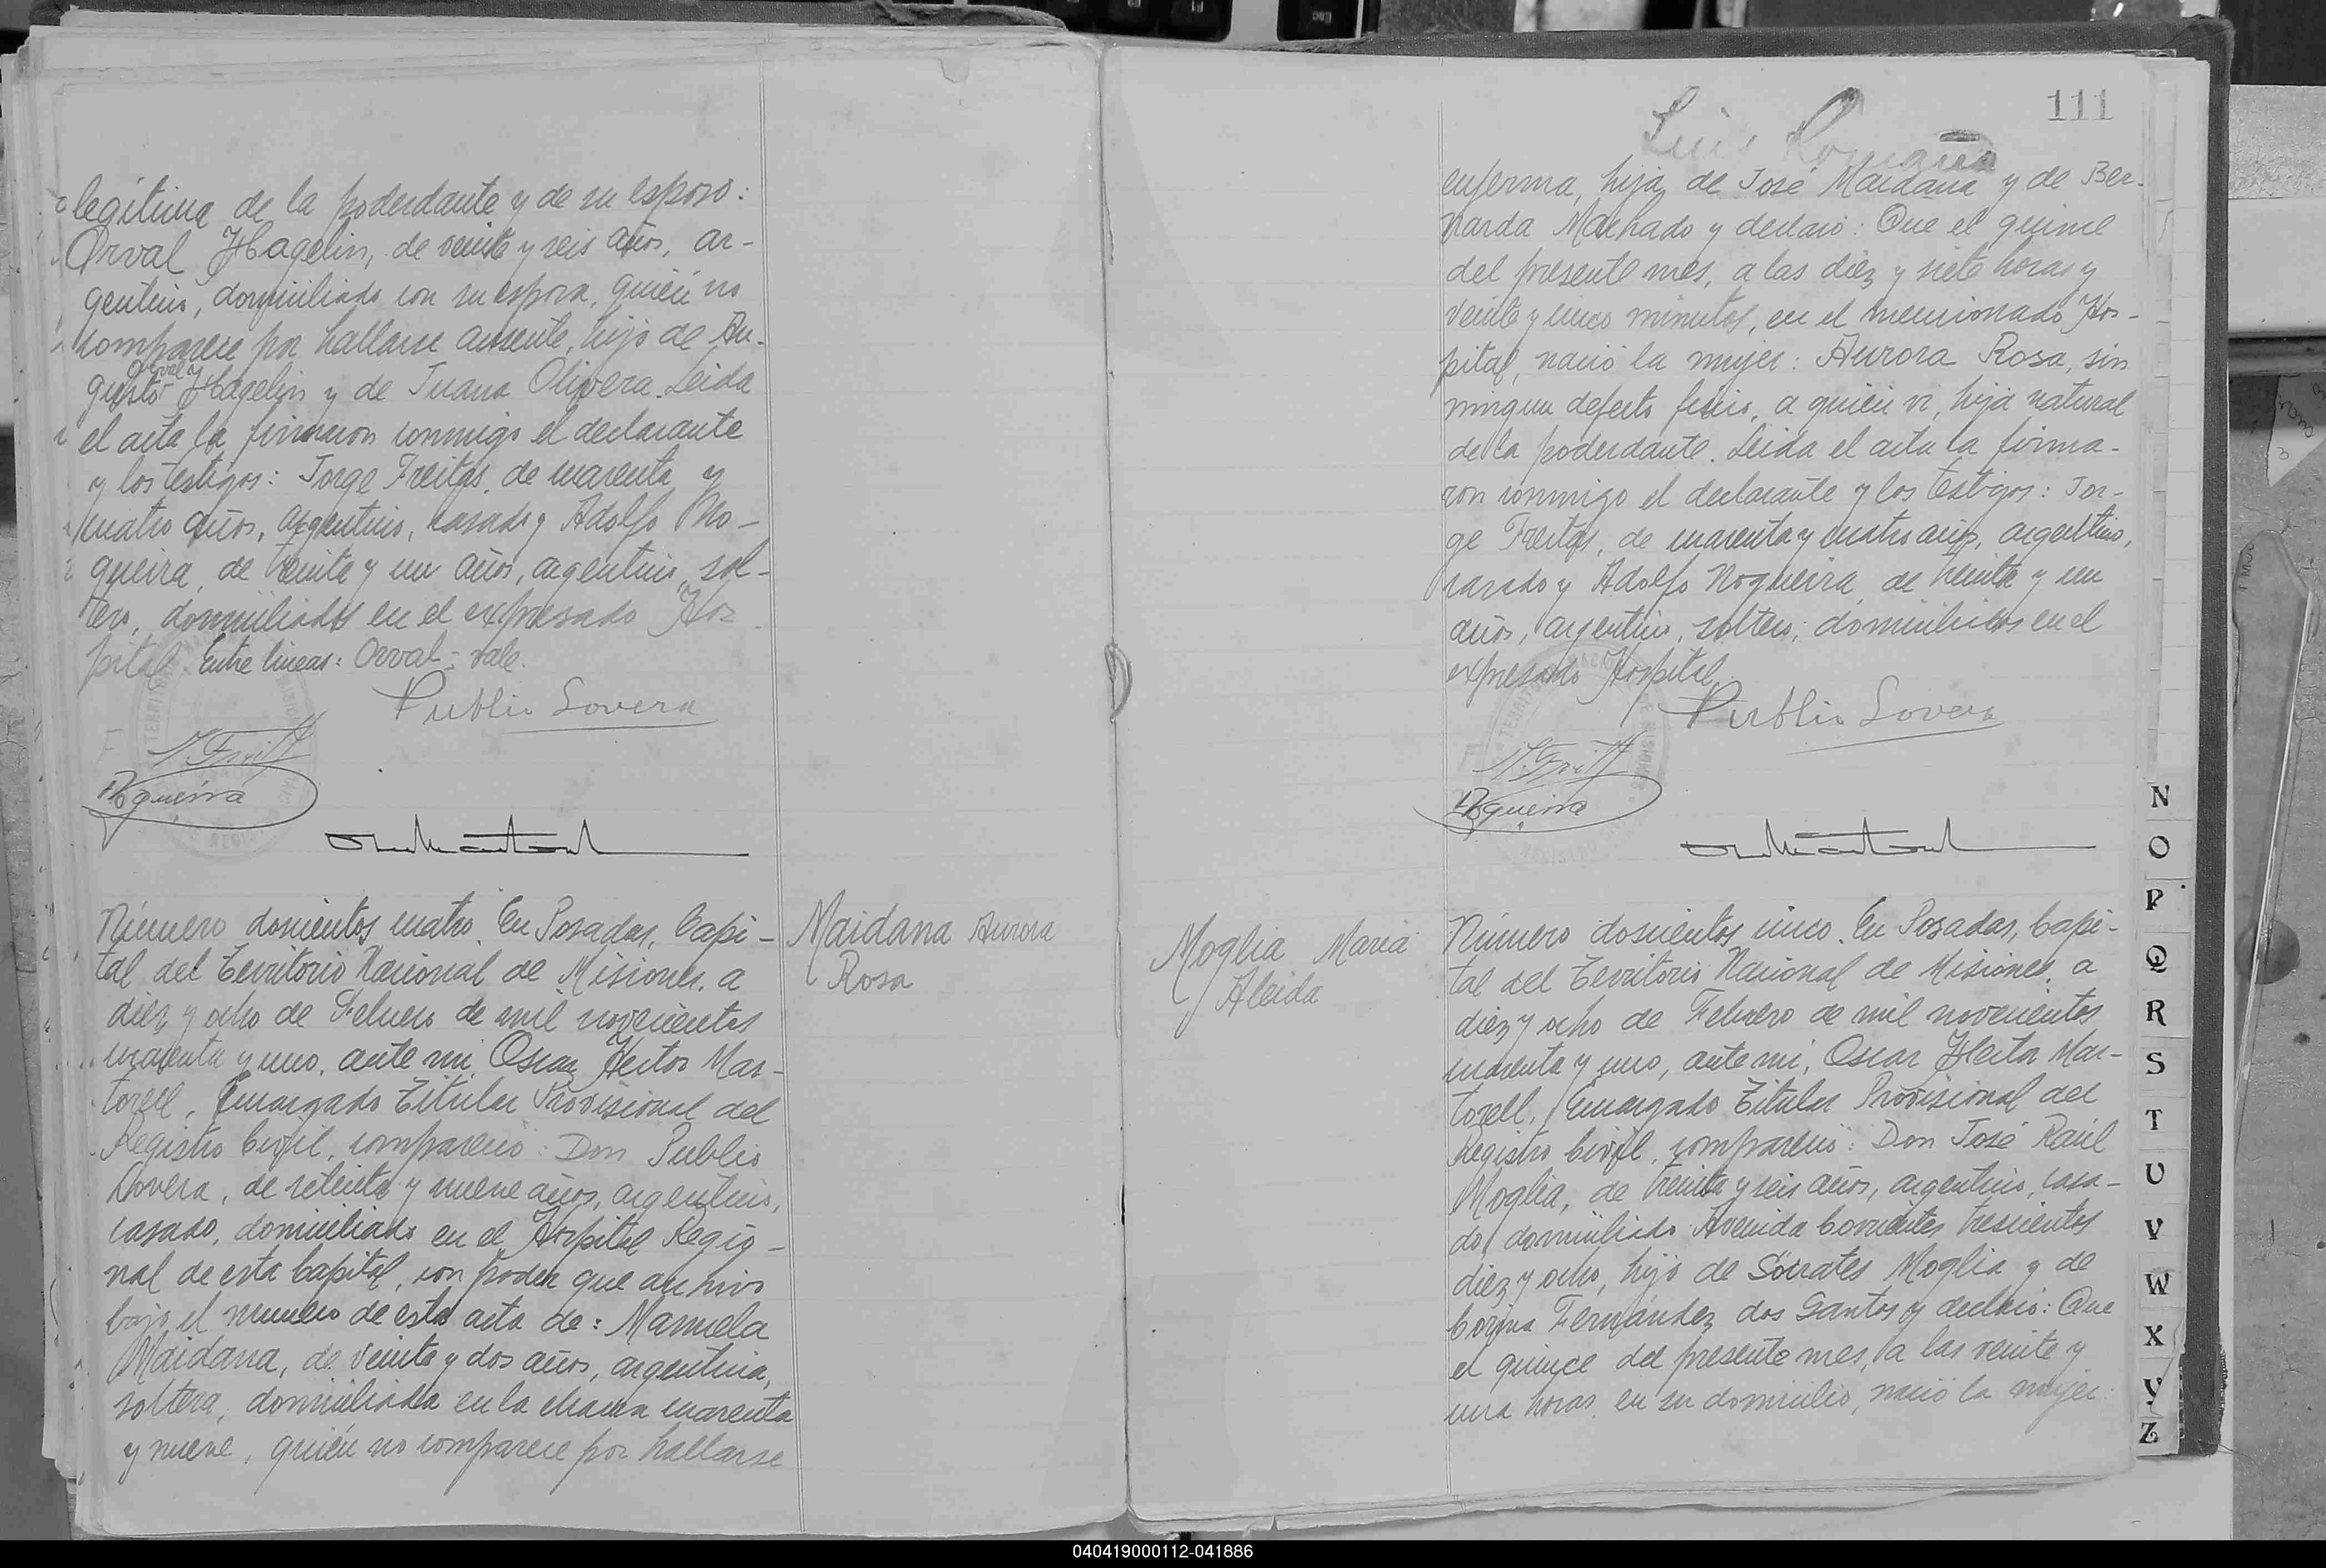 legítima de la poderdante y de su esposo:
Orval Hagelin, de veinte y seis años, ar-
gentino, domiciliado con su esposa, quién no
comparece por hallarse ausente, hijo de Au-
Orval y
gusto Hagelin y de Juana Olivera. Leida
el acta la firmaron conmigo el declarante
y los testigos: Jorge Freitas, de cuarenta y
cuatro años, argentino, casado y Adolfo No-
gueira, de treinta y un años, argentino, sol-
tero, domiciliados en el expresado Hos
pital. Entre lineas: Orval - vale.
Publio Lovera
Nogueira
Número doscientos cuatro. En Posadas, Capi-
tal del Territorio Nacional de Misiones, a
diez y ocho de Febrero de mil novecientos
cuarenta y uno, ante mi, Oscar Hector Mar-
torell, Encargado Titular Provisional del
Registro Civil, compareció: Don Publio
Lovera, de setenta y nueve años, argentino,
casado, domiciliado en el Hospital Regio-
nal de esta Capital, con poder que archivo
bajo el numero de esta acta de: Manuela
Maidana, de veinte y dos años, argentina,
soltera, domiciliada en la chacra cuarenta
y nueve, quién no comparece por hallarse
Maidana Aurora
Rosa
111
Luis
enferma, hija de José Maidana y de Ber-
narda Machado y declaró: Que el quince
del presente mes, a las diez y siete horas y
veinte y cinco minutos, en el mencionado Hos-
pital, nació la mujer: Aurora Rosa, sin
ningun defecto fisico, a quién vi, hija natural
de la poderdante. Leida el acta la firma-
ron conmigo el declarante y los testigos: Jor-
ge Freitas, de cuarenta y cuatro años, argentino,
casado y Adolfo Nogueira, de treinta y un
años, argentino, soltero, domiciliados en el
expresado Hospital.
Publio Lovera
Nogueira
Moglia Maria
Aleida
Número doscientos cinco. En Posadas, Capi-
tal del Territorio Nacional de Misiones, a
diez y ocho de Febrero de mil novecientos
cuarenta y uno, ante mi, Oscar Hector Mar-
torell, Encargado Titular Provisional del
Registro Civil, compareció: Don José Raúl
Moglia, de treinta y seis años, argentino, casa-
do, domiciliado Avenida Corrientes trescientos
diez y ocho, hijo de Sócrates Moglia y de
Corina Fernández dos Santos y declaró: Que
el quince del presente mes, a las veinte y
una horas, en su domicilio, nació la mujer:
N
O
P
Q
R
S
T
U
V
W
X
Y
Z
040419000112-041886